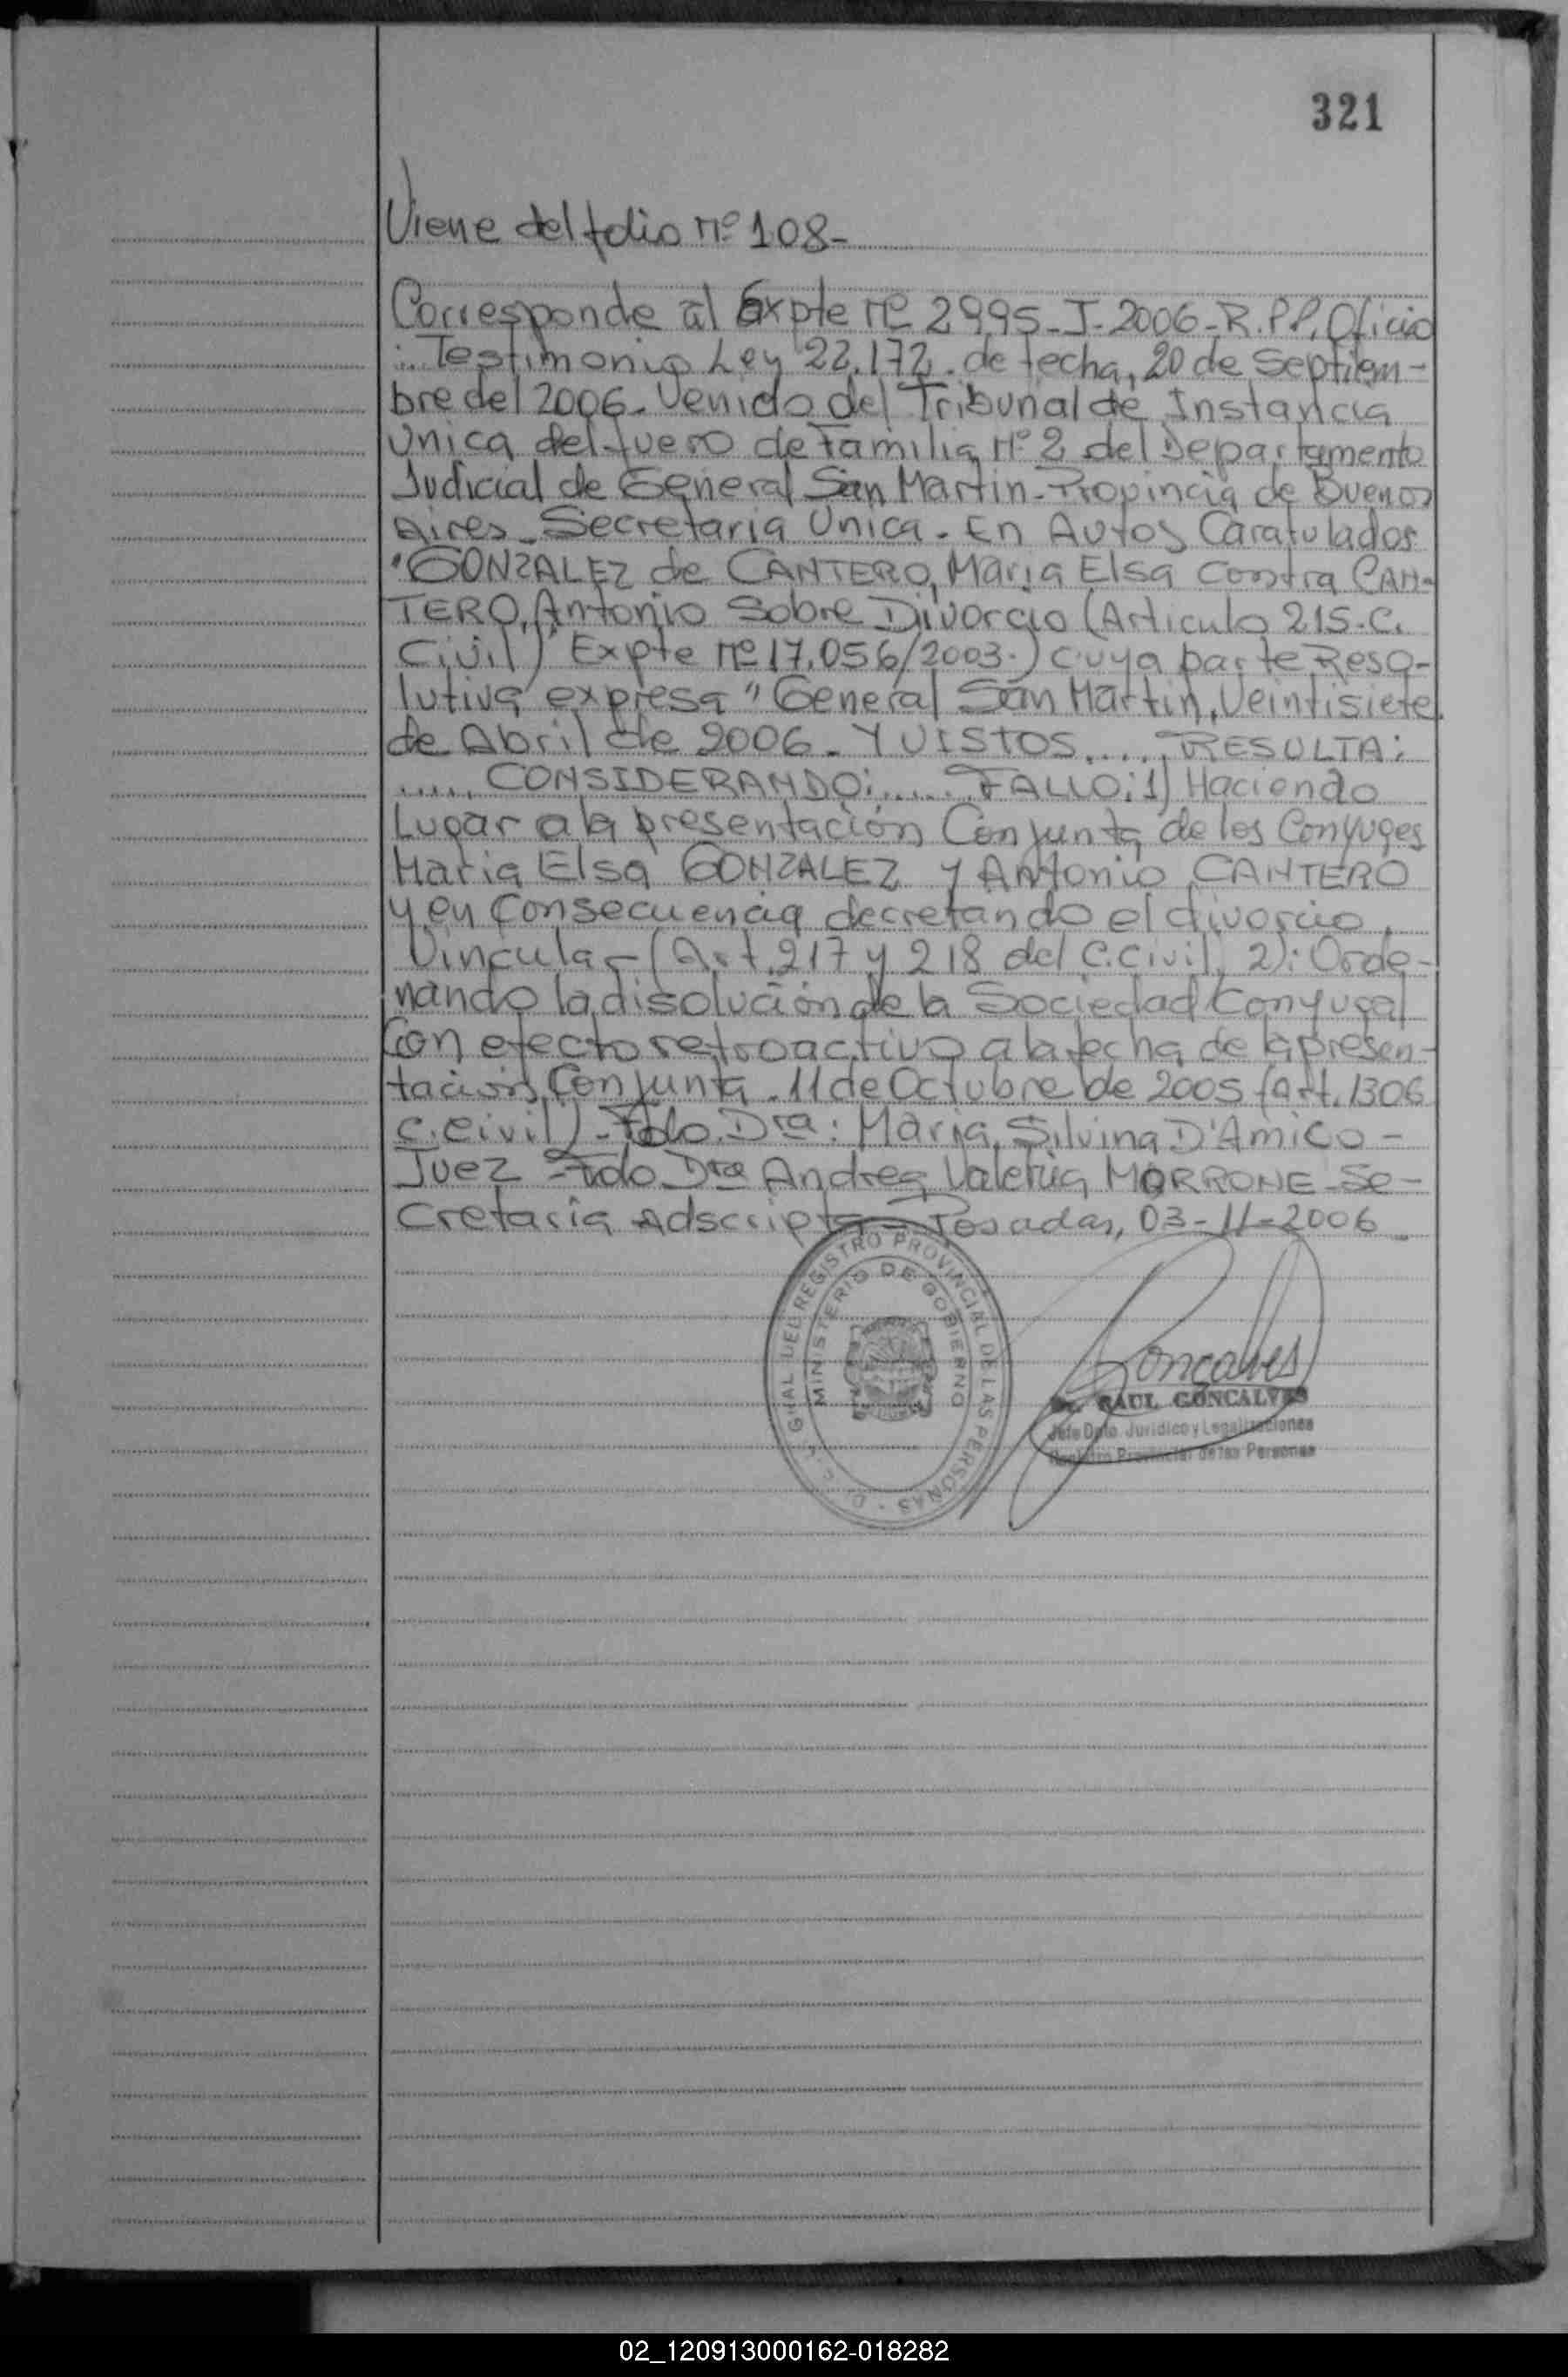 321
Viene del folio Nº 108-
Corresponde al Expte Nº 2995-J-2006-R.P.P. Oficio
Testimonio Ley 22.172. de fecha, 20 de Septiem-
bre del 2006. Venido del Tribunal de Instancia
Unica del fuero de Familia Nº 2 del Departamento
Judicial de General San Martin-Provincia de Buenos
Aires-Secretaria Unica. En Autos Caratulados
"GONZALEZ de CANTERO, Maria Elsa contra CAN-
TERO, Antonio Sobre Divorcio (Articulo 215.C.
Civil)" Expte Nº 17.056/2003.) cuya parte Reso-
lutiva expresa "General San Martin, Veintisiete
de Abril de 2006. Y VISTOS..... RESULTA:
..... CONSIDERANDO:...... FALLO: 1) Haciendo
Lugar a la presentación Conjunta de los Conyuges
Maria Elsa GONZALEZ y Antonio CANTERO
y en Consecuencia decretando el divorcio
Vincular-(Art. 217 y 218 del C.Civil), 2): Orde-
nando la disolución de la Sociedad Conyugal
Con efecto retroactivo a la fecha de la presen-
tación Conjunta. 11 de Octubre de 2005 (Art. 1306
C.Civil)-Fdo. Dra: Maria Silvina D'Amico-
Juez-Fdo Dra Andrea Valeria MORRONE-Se-
cretaria Adscripta-Posadas, 03-11-2006
D. GRAL DEL REGISTRO PROVINCIAL DE LAS PERSONAS
MINISTERIO DE GOBIERNO
Goncalves
Dr. RAUL GONCALVES
Jefe Dpto. Juridico y Legalizaciones
Registro Provincial de las Personas
02_120913000162-018282